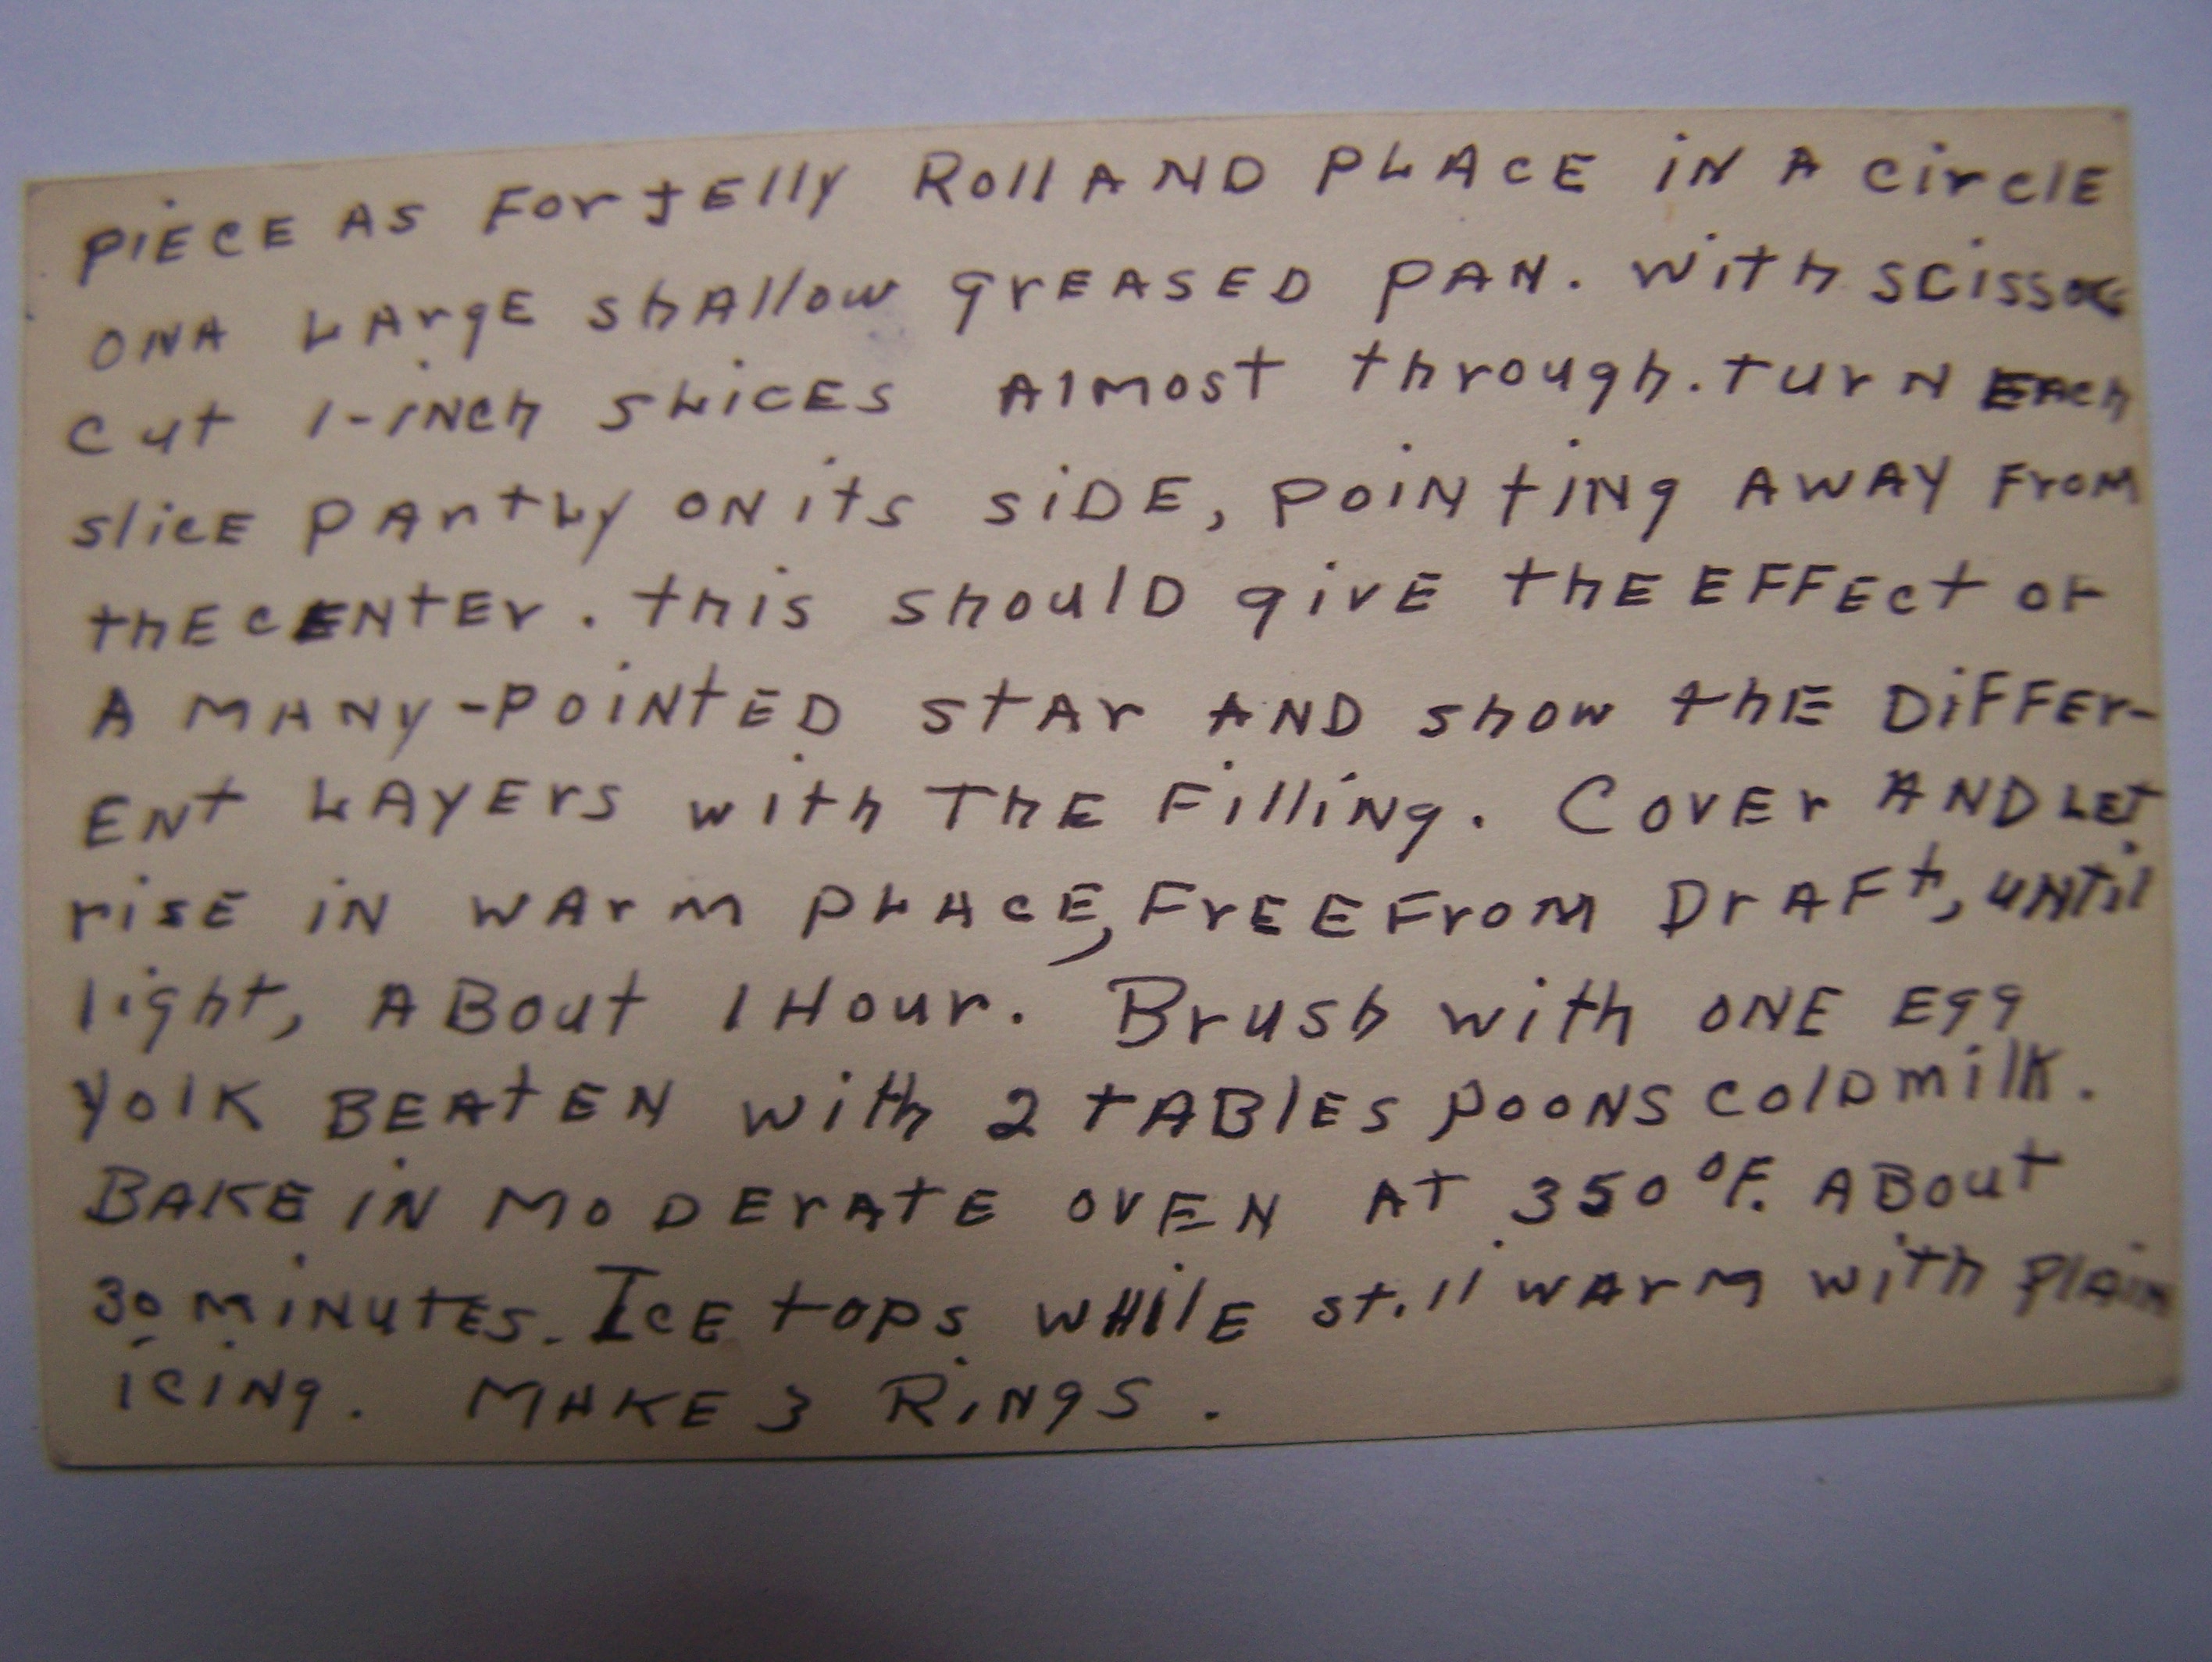 PiECE AS For JElly Roll AND PLACE iN A circlE
ONA LArgE shAllow grEASED PAN. With SCISSOrs
cut 1-iNch SLICES Almost through. turN EAch
slicE PArtLy ON its SiDE, PoiNtiNg AWAY From
thE cENtEr. this should givE thE EFFEct oF
A MANy-PoiNtED stAr AND show thE DiFFEr-
ENt LAYErs with ThE FilliNg. CovEr AND LEt
risE iN WArm PLACE, FrEE From DrAFt, uNtil
light, ABout 1 Hour. Brush with ONE Egg
YolK BEAtEN with 2 tABlESPooNS colD milK.
BAKE iN MoDErAtE ovEN At 350°F. ABout
30 miNutEs. IcE toPs wHilE still wArm with PlAiN
iciNg. MAKE 3 RiNgS.